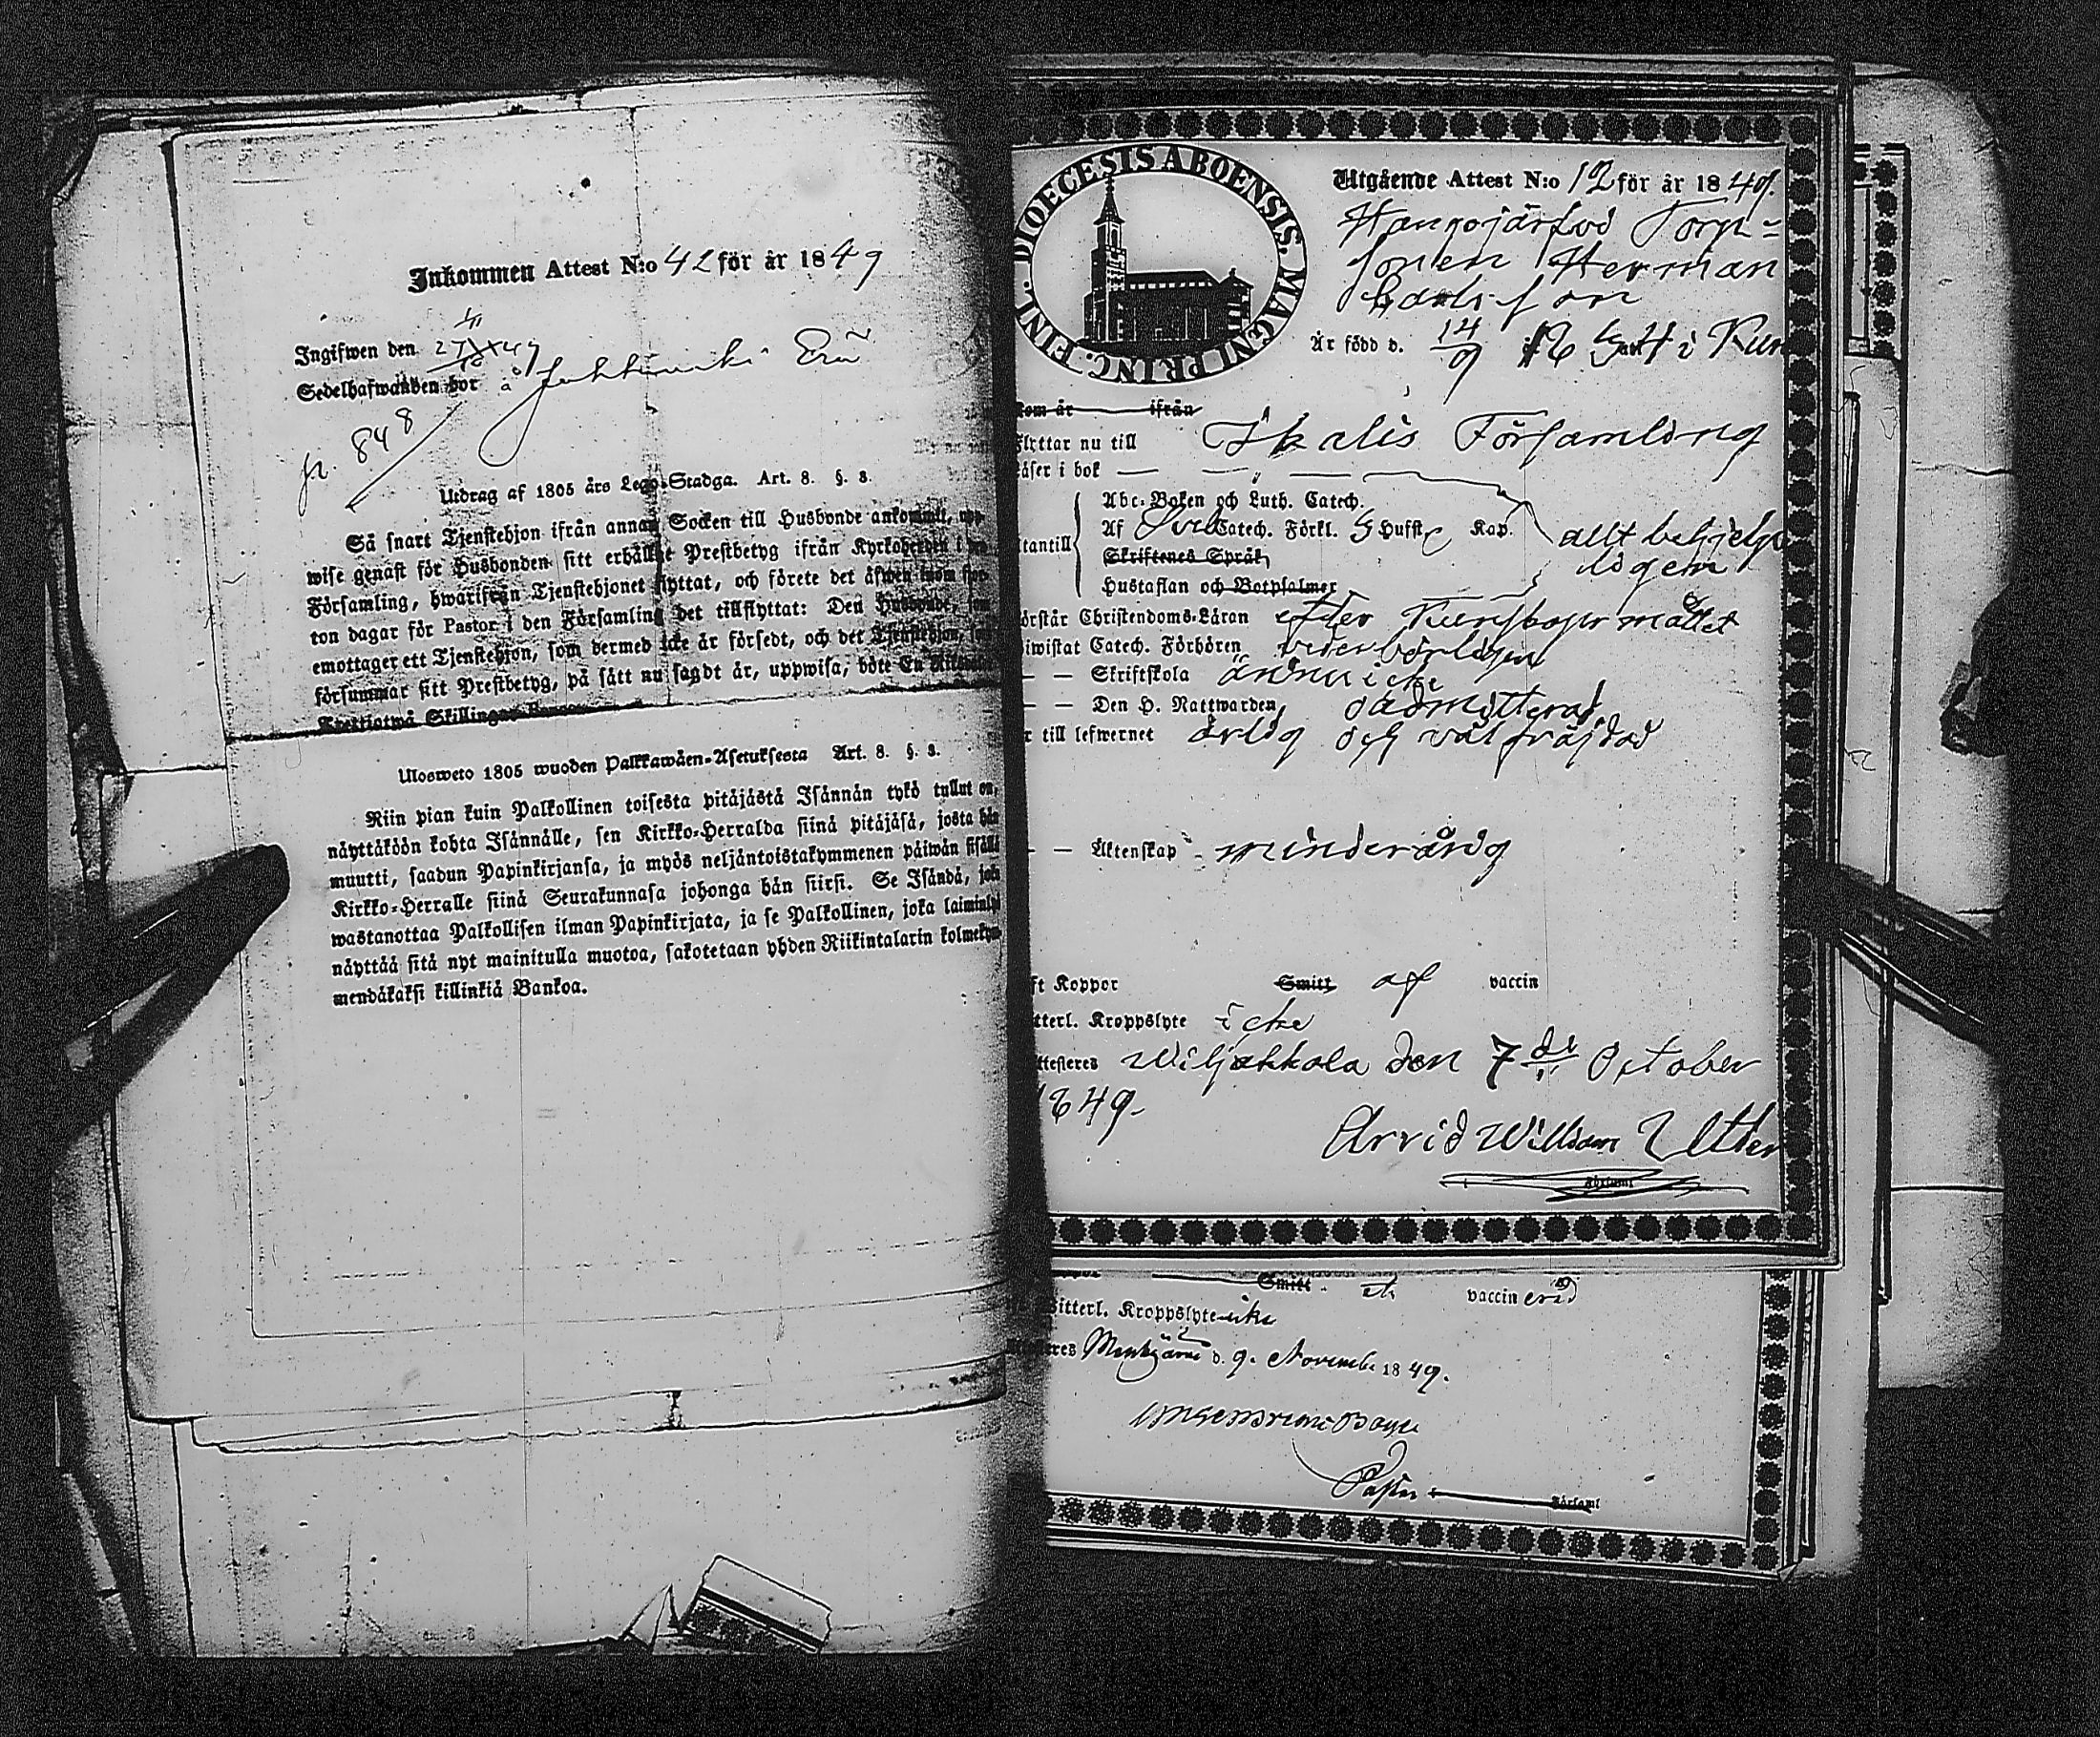 Inkommen Attest N:o 42 för år 1849
Ingifwen den
Sedelhafwanden bor å
Utdrag af 1805 års Lego-Stadga. Art. 8. §. 3.
Så snart Tjenstehjon ifrån annan Socken till Husbonde ankommit, upp-
wise genast för Husbonden sitt erhållne Prestbetyg ifrån Kyrkoherden i
Församling, hwarifrån Tjenstehjonet flyttat, och förete det äfwen inom
ton dagar för Pastor i den Församling det tillflyttat: Den Husbonde, som
emottager ett Tjenstehjon, som dermed icke är försedt, och det Tjenstehjon,
försummar sitt Prestbetyg, på sätt nu sagdt är, uppwisa, böte En Riksdaler
Trettiotwå Skillingar
Ulosweto 1805 wuoden Palkkawäen-Asetuksesta Art. 8. §. 3.
Niin pian kuin Palkollinen toisesta pitäjästä Isännän tykö tullut on,
näyttäköön kohta Isännälle, sen Kirkko-Herralda siinä pitäjäsä, josta hän
muutti, saadun Papinkirjansa, ja myös neljäntoistakymmenen päiwän sisällä
Kirkko-Herralle siinä Seurakunnasa johonga hän siirsi. Se Isändä, joka
wastanottaa Palkollisen ilman Papinkirjata, ja se Palkollinen, joka laiminlyö
näyttää sitä nyt mainitulla muotoa, sakotetaan yhden Riikintalarin kolmekym-
mendäkaksi killinkiä Bankoa.
DIOECESIS ABOENSIS. MAGNI PRINC. FINL.
Utgående Attest N:o 12 för år 1849.
Torp-
sonen Herman
Carlsson
Är född d. 14/9
kom år ifrån
Flyttar nu till Ikalis Församling
Läser i bok
Abc-Boken och Luth. Catech.
utantill Af Catech. Förkl. Hufst. Kap. allt behjelp-
Skriftenes Språk, ligen
Hustaflan och Botpsalmer
örstår Christendoms-Läran efter Kunskaps måttet
iwistat Catech. Förhören vederbörligen
— — Skriftskola ännu icke
— — Den H. Nattwarden, oadmitterad
r till lefwernet ärlig och välfräjdad
— — Äktenskap minderårig
ft Koppor Smitt af vaccin
tterl. Kroppslyte icke
ttesteras Wiljakkala den 7de October
1849.
Arvid William Utter
Smitt vaccin
Witterl. Kroppslyte icke
d. 9. November 1849.
Pastor
Församl